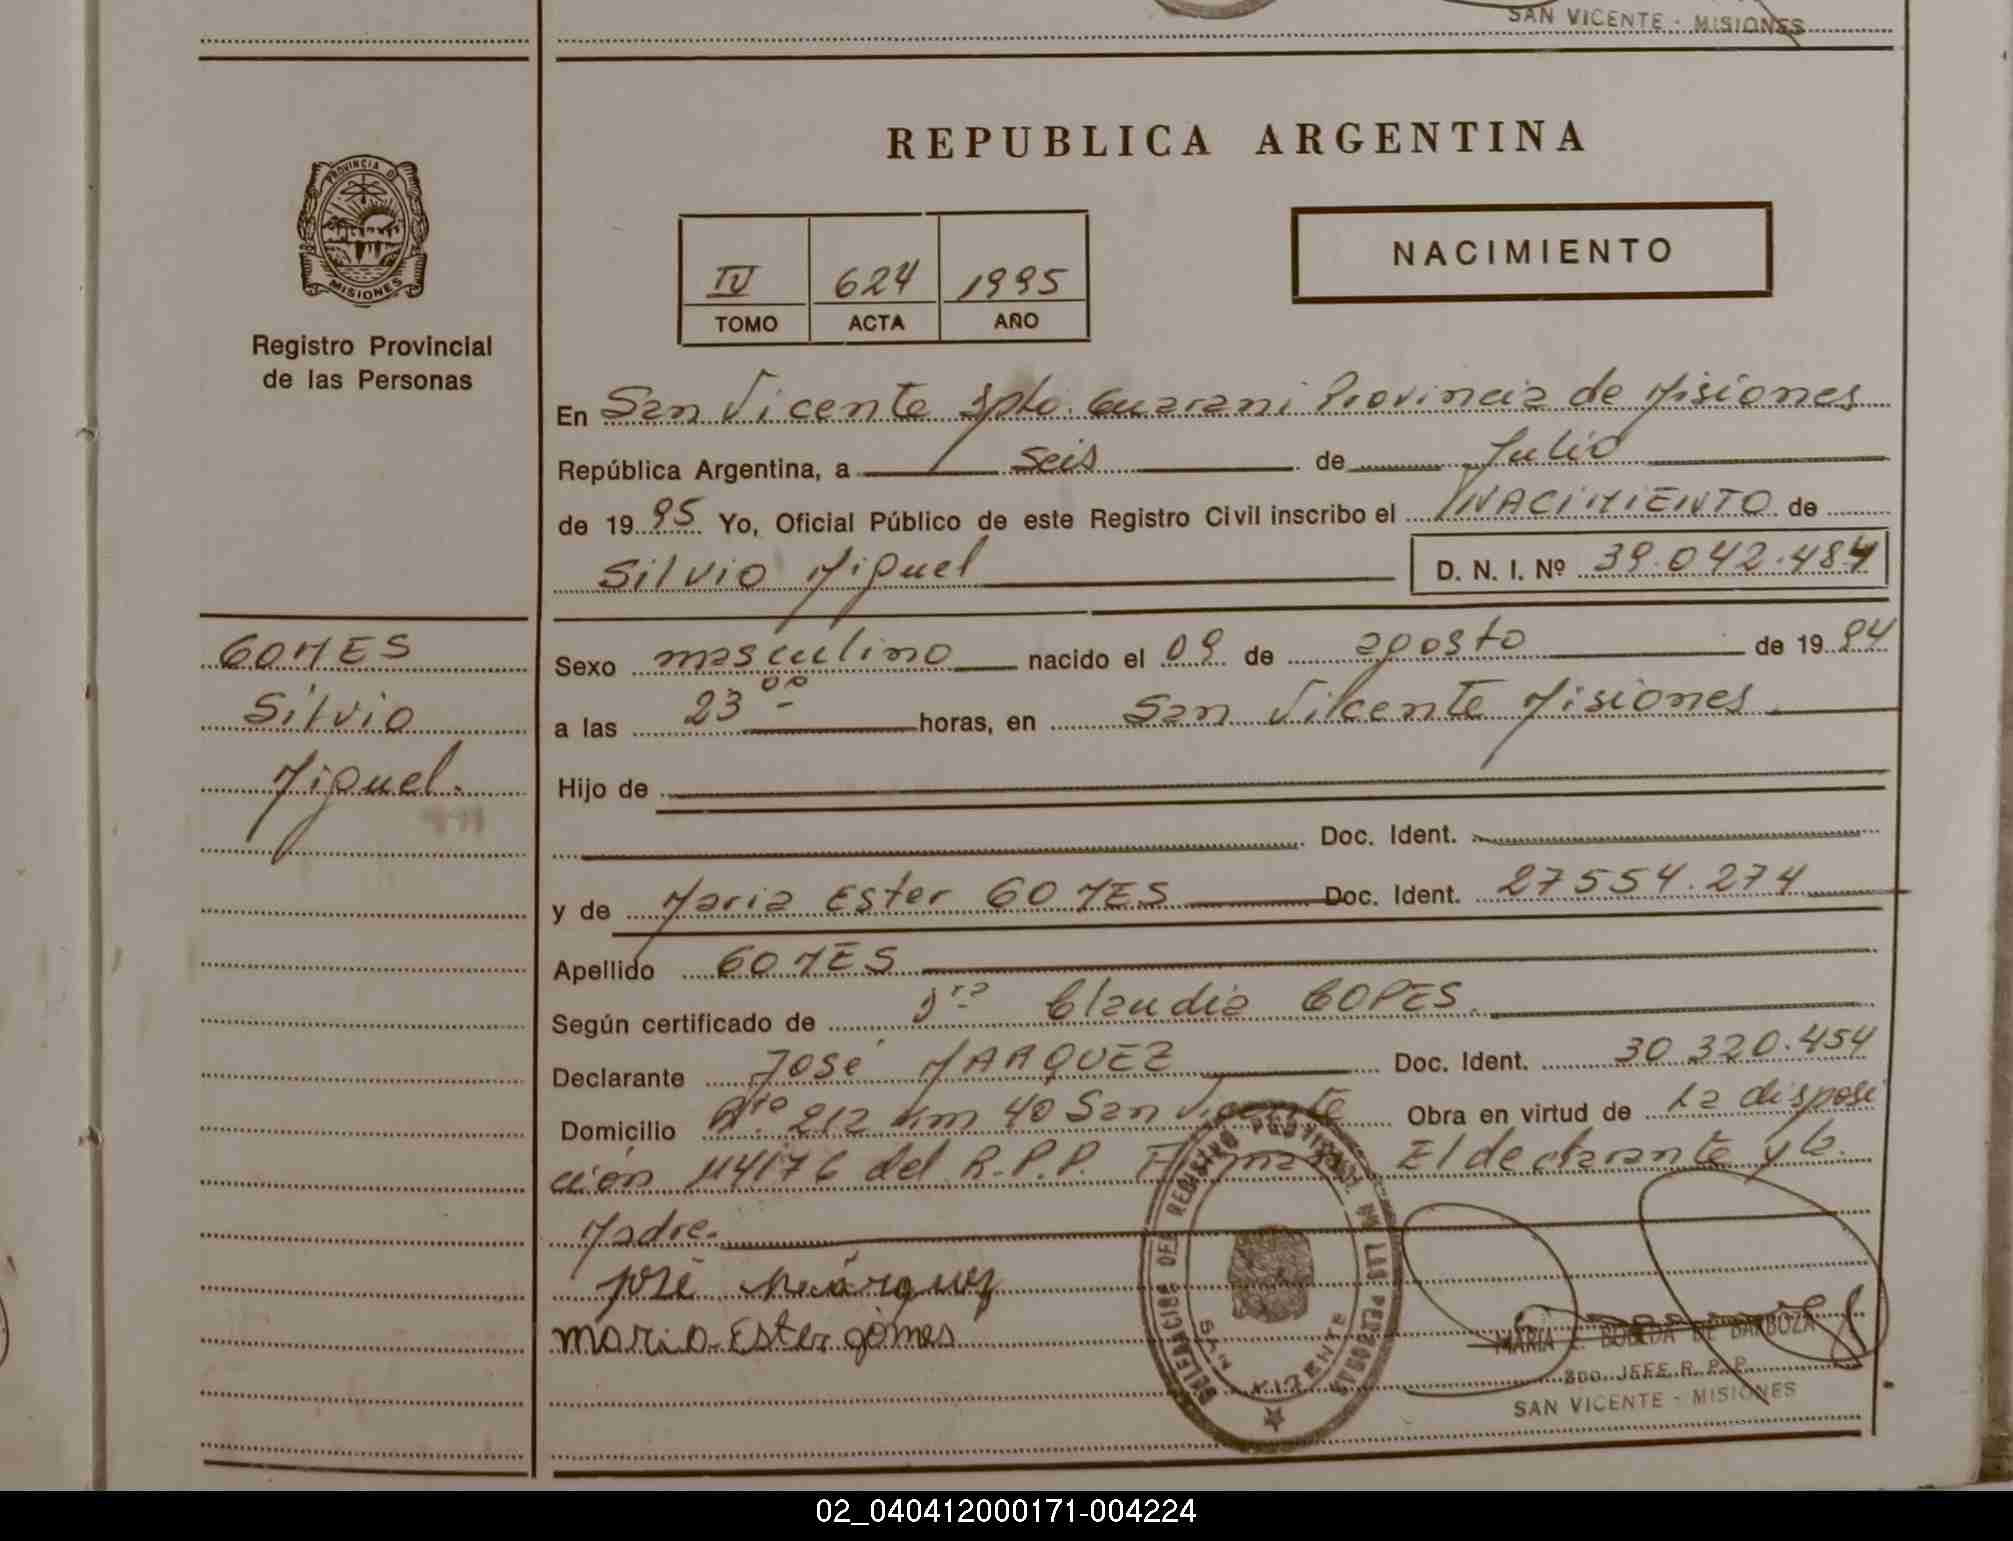 SAN VICENTE - MISIONES
REPUBLICA ARGENTINA
PROVINCIA D
MISIONES
Registro Provincial
de las Personas
IV 624 1995
TOMO ACTA AÑO
NACIMIENTO
En San Vicente Dpto. Guarani Provincia de Misiones
República Argentina, a seis de Julio
de 1995 Yo, Oficial Público de este Registro Civil inscribo el NACIMIENTO de
Silvio Miguel D. N. I. Nº 39.042.484
GOMES
Silvio
Miguel.
Sexo masculino nacido el 09 de agosto de 1994
a las 23 00 horas, en San Vicente Misiones
Hijo de
Doc. Ident.
y de Maria Ester GOMES Doc. Ident. 27554.274
Apellido GOMES
Según certificado de Dra Claudia COPES.
Declarante José MARQUEZ Doc. Ident. 30 320.454
Domicilio Rta. 212 Km 40 San Vicente Obra en virtud de la disposi
ción 114/76 del R.P.P. Firman El declarante y la
Madre.
José Márquez
maria Ester gomes
DELEGACION DEL REGISTRO PROVINCIAL DE LAS PERSONAS
SAN VICENTE
MARIA E. BOBEDA DE BARBOZA
2do. JEFE R. P. P.
SAN VICENTE - MISIONES
02_040412000171-004224